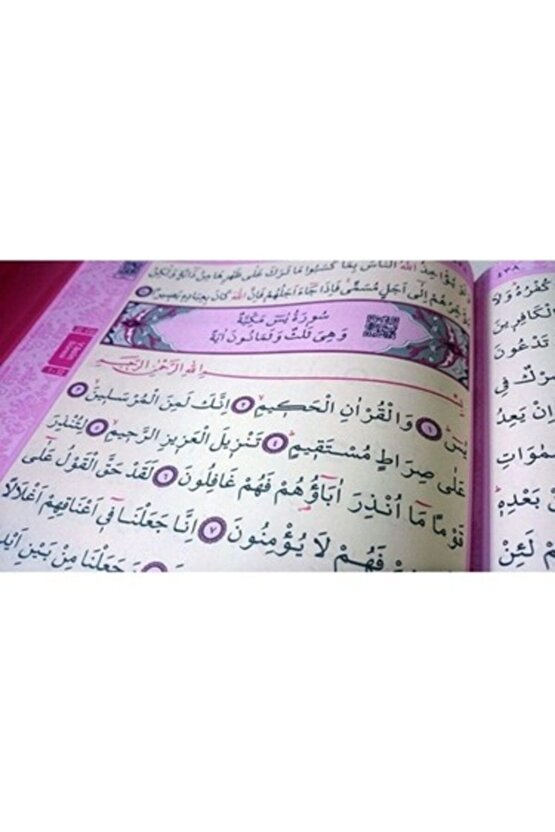 النَّاسَ بِمَا كَسَبُوا مَا تَرَكَ عَلٰى ظَهْرِهَا مِنْ دَٓابَّةٍ وَلٰكِنْ
اِلٰٓى اَجَلٍ مُسَمًّىۚ فَاِذَا جَٓاءَ اَجَلُهُمْ فَاِنَّ اللّٰهَ كَانَ بِعِبَادِه۪ بَص۪يرًا
سُورَةُ يٰسٓ مَكِّيَّةٌ
وَهِيَ ثَلٰثٌ وَثَمَانُونَ اٰيَةً
اللّٰهِ الرَّحْمٰنِ الرَّح۪يمِ
يٰسٓ ﴿١﴾ وَالْقُرْاٰنِ الْحَك۪يمِ ﴿٢﴾ اِنَّكَ لَمِنَ الْمُرْسَل۪ينَ ﴿٣﴾
عَلٰى صِرَاطٍ مُسْتَق۪يمٍ ﴿٤﴾ تَنْز۪يلَ الْعَز۪يزِ الرَّح۪يمِ ﴿٥﴾ لِتُنْذِرَ
قَوْمًا مَٓا اُنْذِرَ اٰبَٓاؤُ۬هُمْ فَهُمْ غَافِلُونَ ﴿٦﴾ لَقَدْ حَقَّ الْقَوْلُ عَلٰٓى
فَهُمْ لَا يُؤْمِنُونَ ﴿٧﴾ اِنَّا جَعَلْنَا ف۪ٓي اَعْنَاقِهِمْ اَغْلَالًا
وَجَعَلْنَا مِنْ بَيْنِ
٤٣٨
كُفْرُهُ وَلَا
الْكَافِر۪ينَ
تَدْعُونَ
شِرْكٌ فِي
اِنْ يَعِدُ
السَّمٰوَاتِ
بَعْدِه۪
لَئِنْ